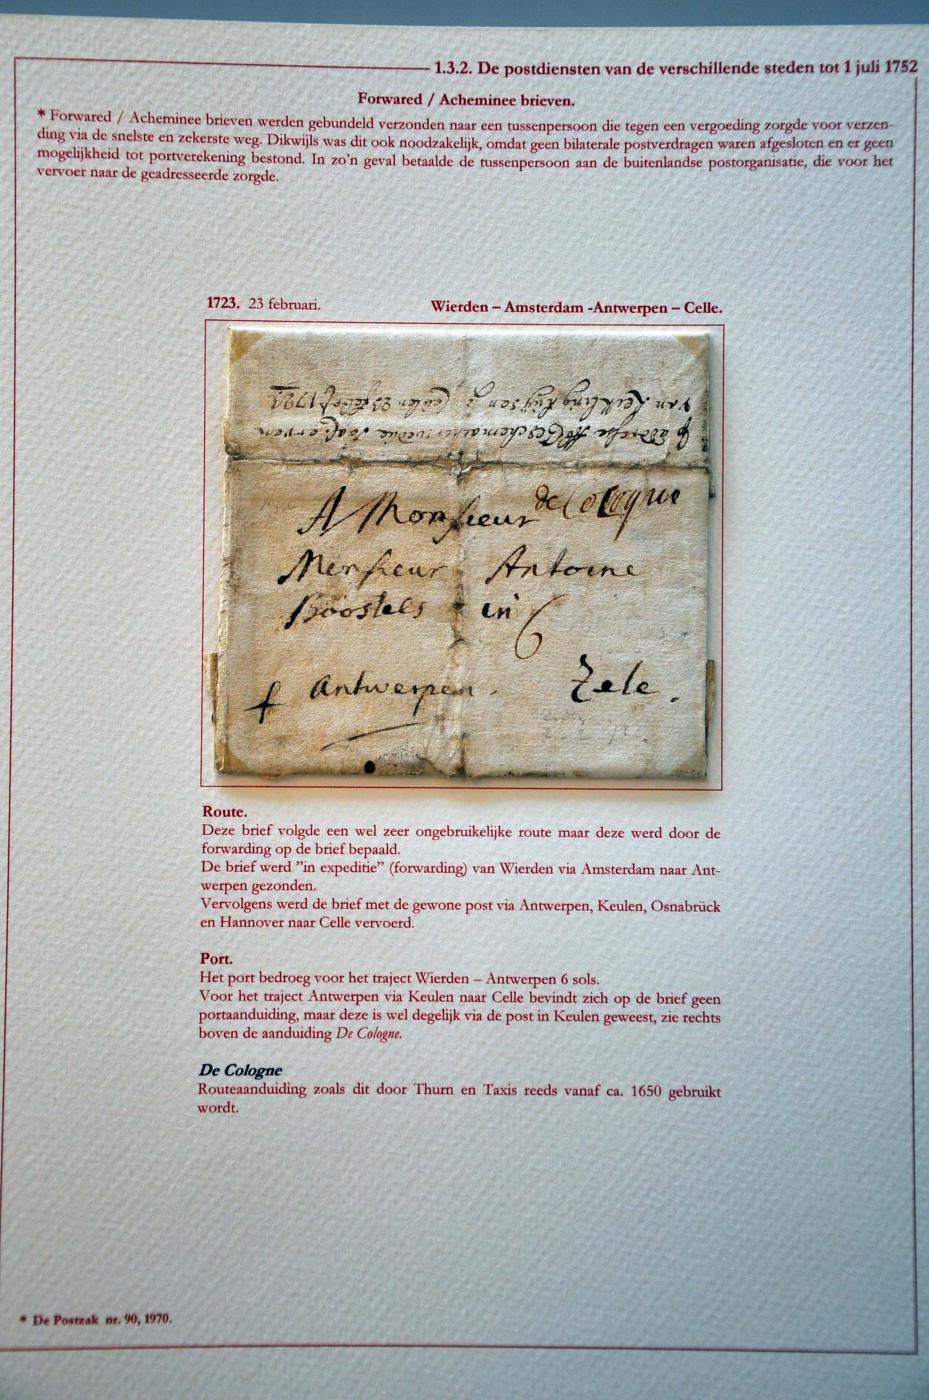 1.3.2. De postdiensten van de verschillende steden tot 1 juli 1752
Forwared / Acheminee brieven.
* Forwared / Acheminee brieven werden gebundeld verzonden naar een tussenpersoon die tegen een vergoeding zorgde voor verzen-
ding via de snelste en zekerste weg. Dikwijls was dit ook noodzakelijk, omdat geen bilaterale postverdragen waren afgesloten en er geen
mogelijkheid tot portverekening bestond. In zo'n geval betaalde de tussenpersoon aan de buitenlandse postorganisatie, die voor het
vervoer naar de geadresseerde zorgde.
1723. 23 februari. Wierden – Amsterdam -Antwerpen – Celle.
A Monsieur de Cologne
Monsieur Antoine
in 6
Antwerpen. Zele.
Route.
Deze brief volgde een wel zeer ongebruikelijke route maar deze werd door de
forwarding op de brief bepaald.
De brief werd "in expeditie" (forwarding) van Wierden via Amsterdam naar Ant-
werpen gezonden.
Vervolgens werd de brief met de gewone post via Antwerpen, Keulen, Osnabrück
en Hannover naar Celle vervoerd.
Port.
Het port bedroeg voor het traject Wierden – Antwerpen 6 sols.
Voor het traject Antwerpen via Keulen naar Celle bevindt zich op de brief geen
portaanduiding, maar deze is wel degelijk via de post in Keulen geweest, zie rechts
boven de aanduiding De Cologne.
De Cologne
Routeaanduiding zoals dit door Thurn en Taxis reeds vanaf ca. 1650 gebruikt
wordt.
* De Postzak nr. 90, 1970.